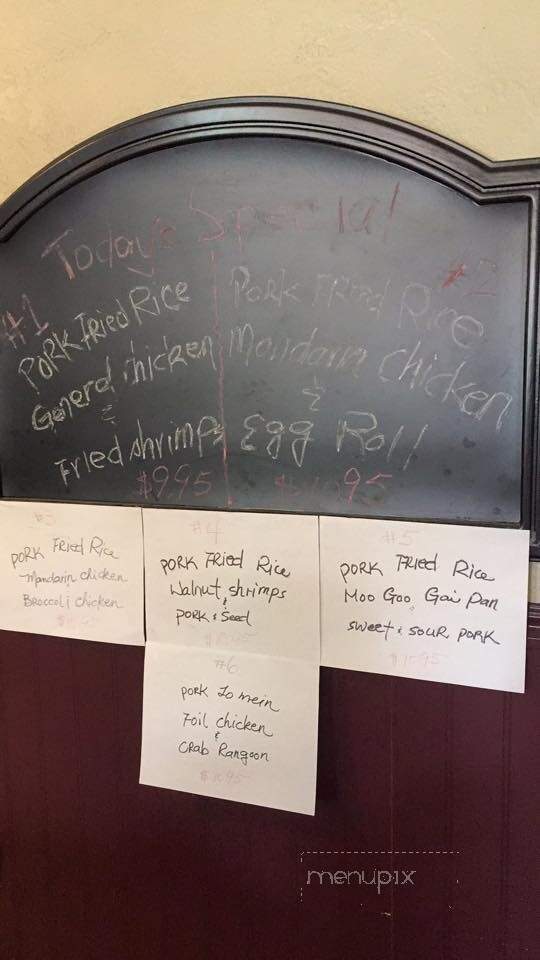 Today's Special
#1
Pork Fried Rice
General chicken
&
Fried shrimps
$9.95
#2
Pork Fried Rice
Mandarin chicken
&
Egg Roll
95
#3
Pork Fried Rice
Mandarin chicken
Broccoli chicken
#4
Pork Fried Rice
Walnut shrimps
&
Pork & Seed
#5
Pork Fried Rice
Moo Goo Gai Pan
Sweet & Sour Pork
#6
Pork Lo mein
Foil chicken
&
Crab Rangoon
$10.95
menupix